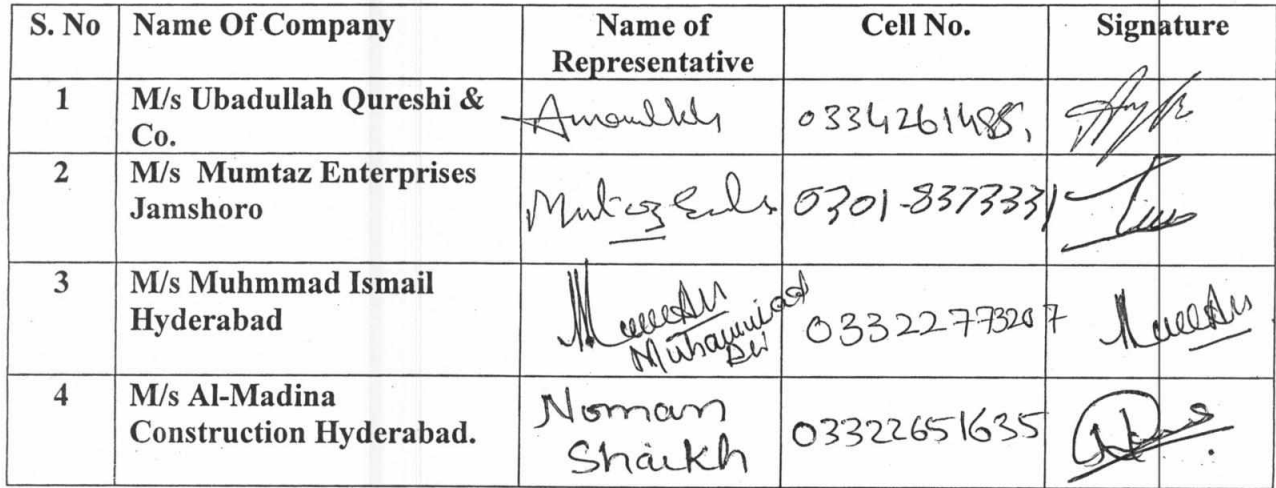 S. No Name Of Company Name of Representative Cell No. Signature
1 M/s Ubadullah Qureshi & Co. 0334261488,
2 M/s  Mumtaz Enterprises Jamshoro 0301-8373331
3 M/s Muhmmad Ismail Hyderabad Muhammad 03322773207
4 M/s Al-Madina Construction Hyderabad. Noman Shaikh 03322651635